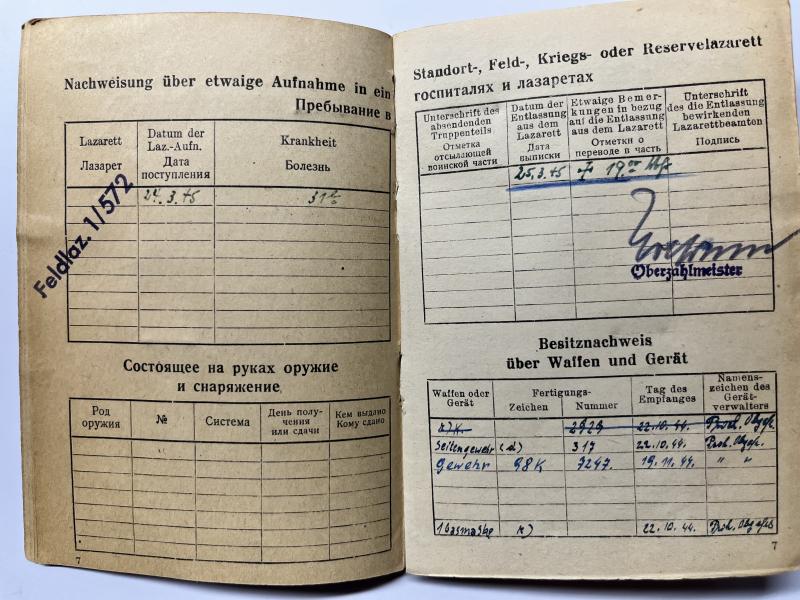 Nachweisung über etwaige Aufnahme in ein
Пребывание в
Lazarett
Лазарет
Datum der
Laz.-Aufn.
Дата
поступления
Krankheit
Болезнь
24.3.45
Feldlaz. 1/572
Состоящее на руках оружие
и снаряжение
Род
оружия
№
Система
День полу-
чения
или сдачи
Кем выдано
Кому сдано
7
Standort-, Feld-, Kriegs- oder Reservelazarett
госпиталях и лазаретах
Unterschrift des
absendenden
Truppenteils
Отметка
отсылающей
воинской части
Datum der
Entlassung
aus dem
Lazarett
Дата
выписки
Etwaige Bemer-
kungen in bezug
auf die Entlassung
aus dem Lazarett
Отметки о
переводе в часть
Unterschrift
des die Entlassung
bewirkenden
Lazarettbeamten
Подпись
25.3.45
Oberzahlmeister
Besitznachweis
über Waffen und Gerät
Waffen oder
Gerät
Fertigungs-
Zeichen
Nummer
Tag des
Empfanges
Namens-
zeichen des
Gerät-
verwalters
2929 22.10.44.
Seitengewehr 317 22.10.44.
Gewehr 98K 7247. 19.11.44. " "
22.10.44.
7